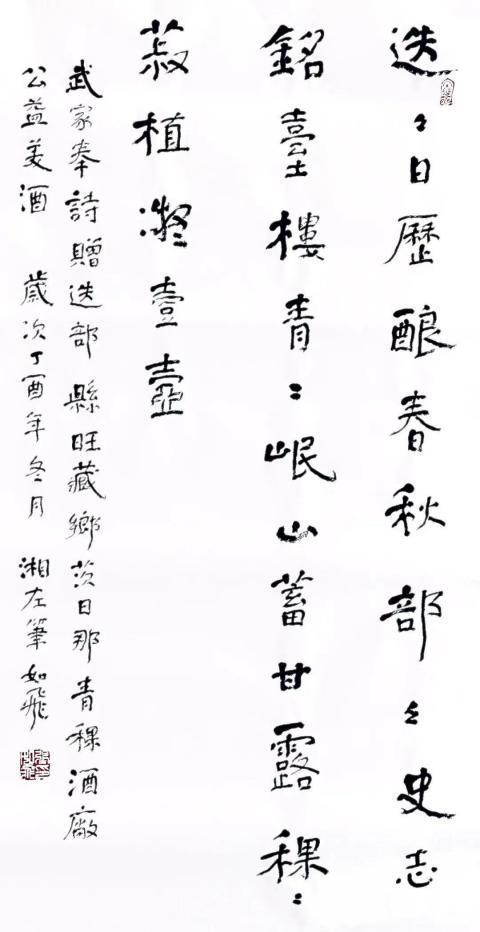 迭〻日歷酿春秋部〻史志
銘臺樓青〻岷山蓄甘露稞〻
菽植凝壹壺
武家奉詩贈迭部縣旺藏鄉茨日那青稞酒廠
公益美酒 歲次丁酉年冬月 湘左筆如飛